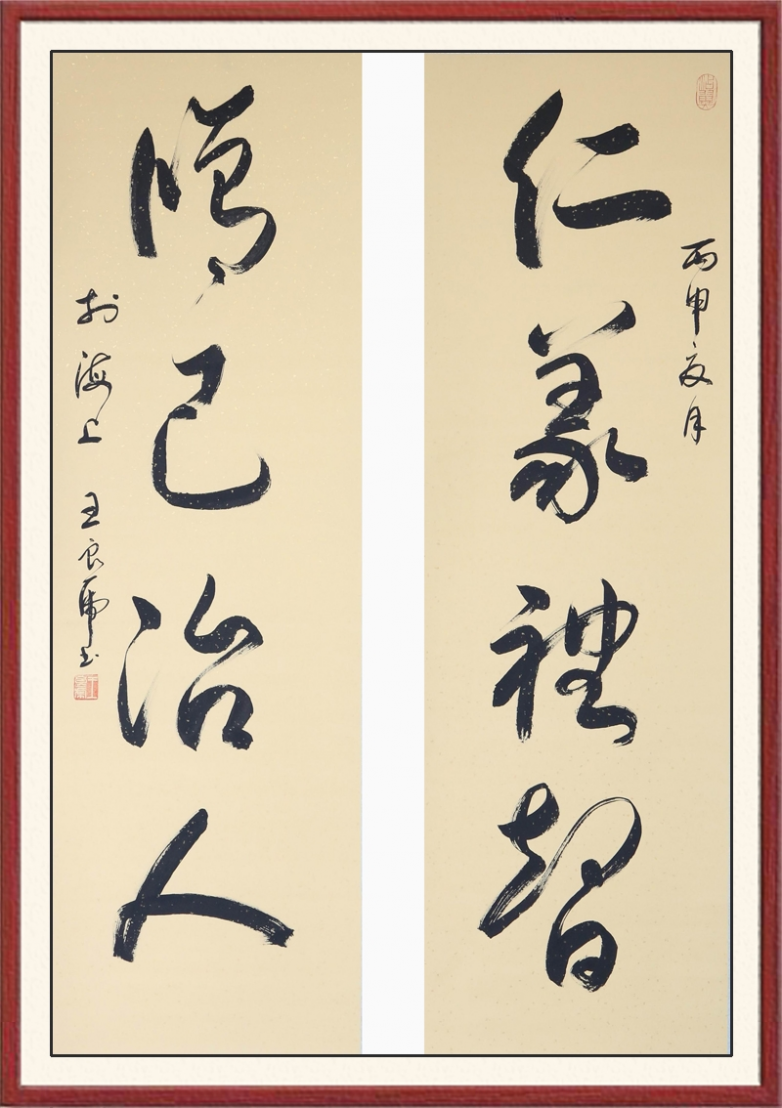 丙申夏月
仁義禮智
修己治人
於海上 王良虎書